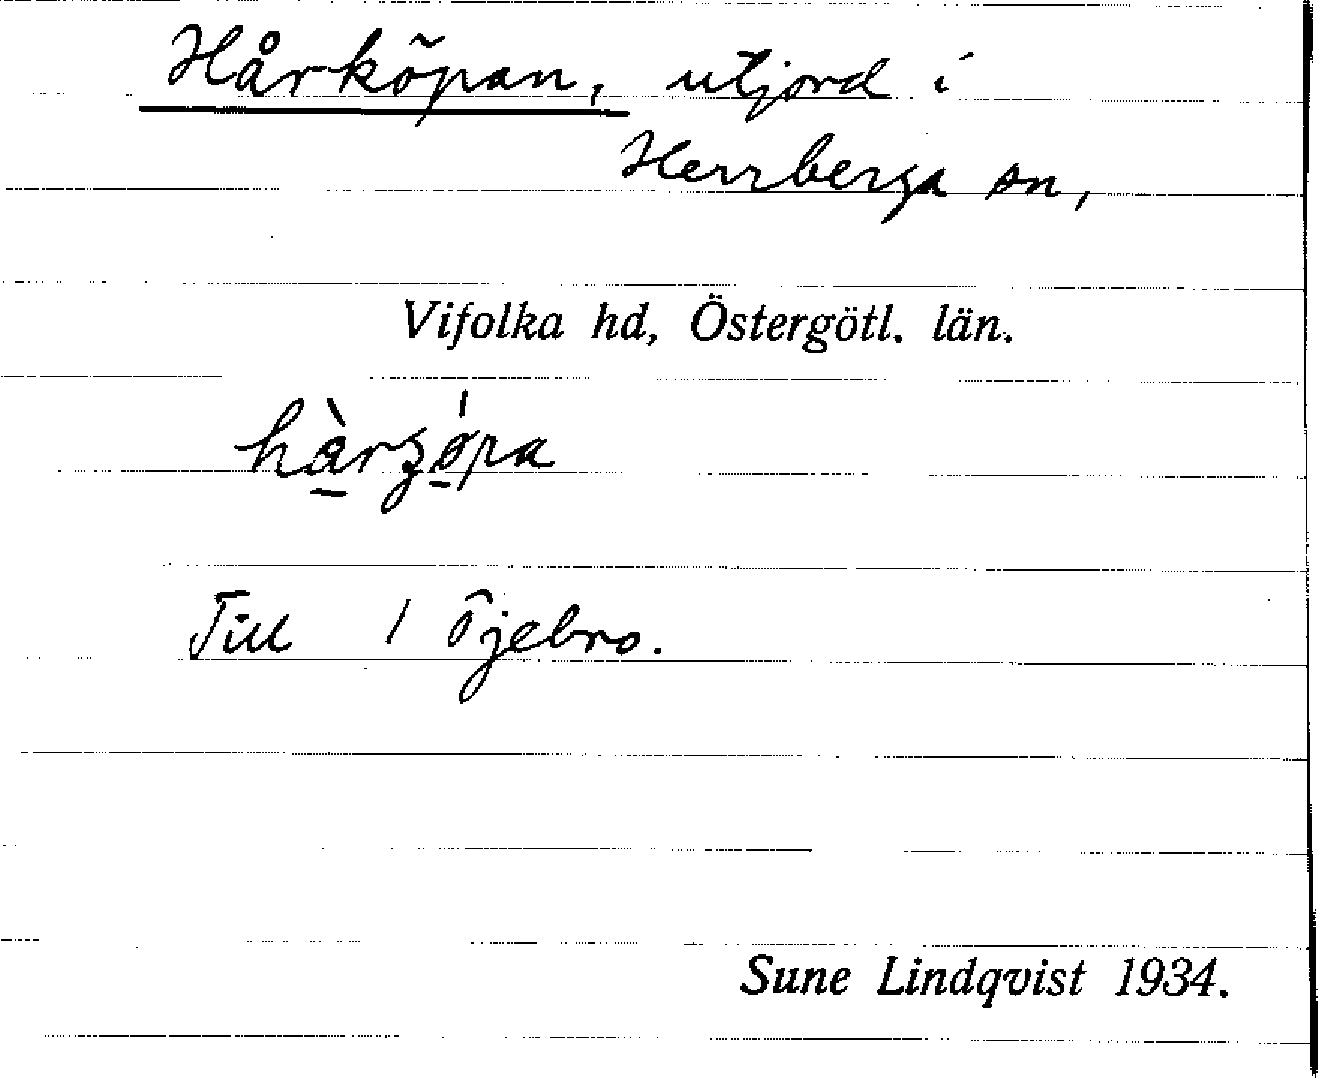 Hårköpan, utjord i
Herrberga sn,
Vifolka hd, Östergötl. län.
Till 1 Öjebro.
Sune Lindqvist 1934.